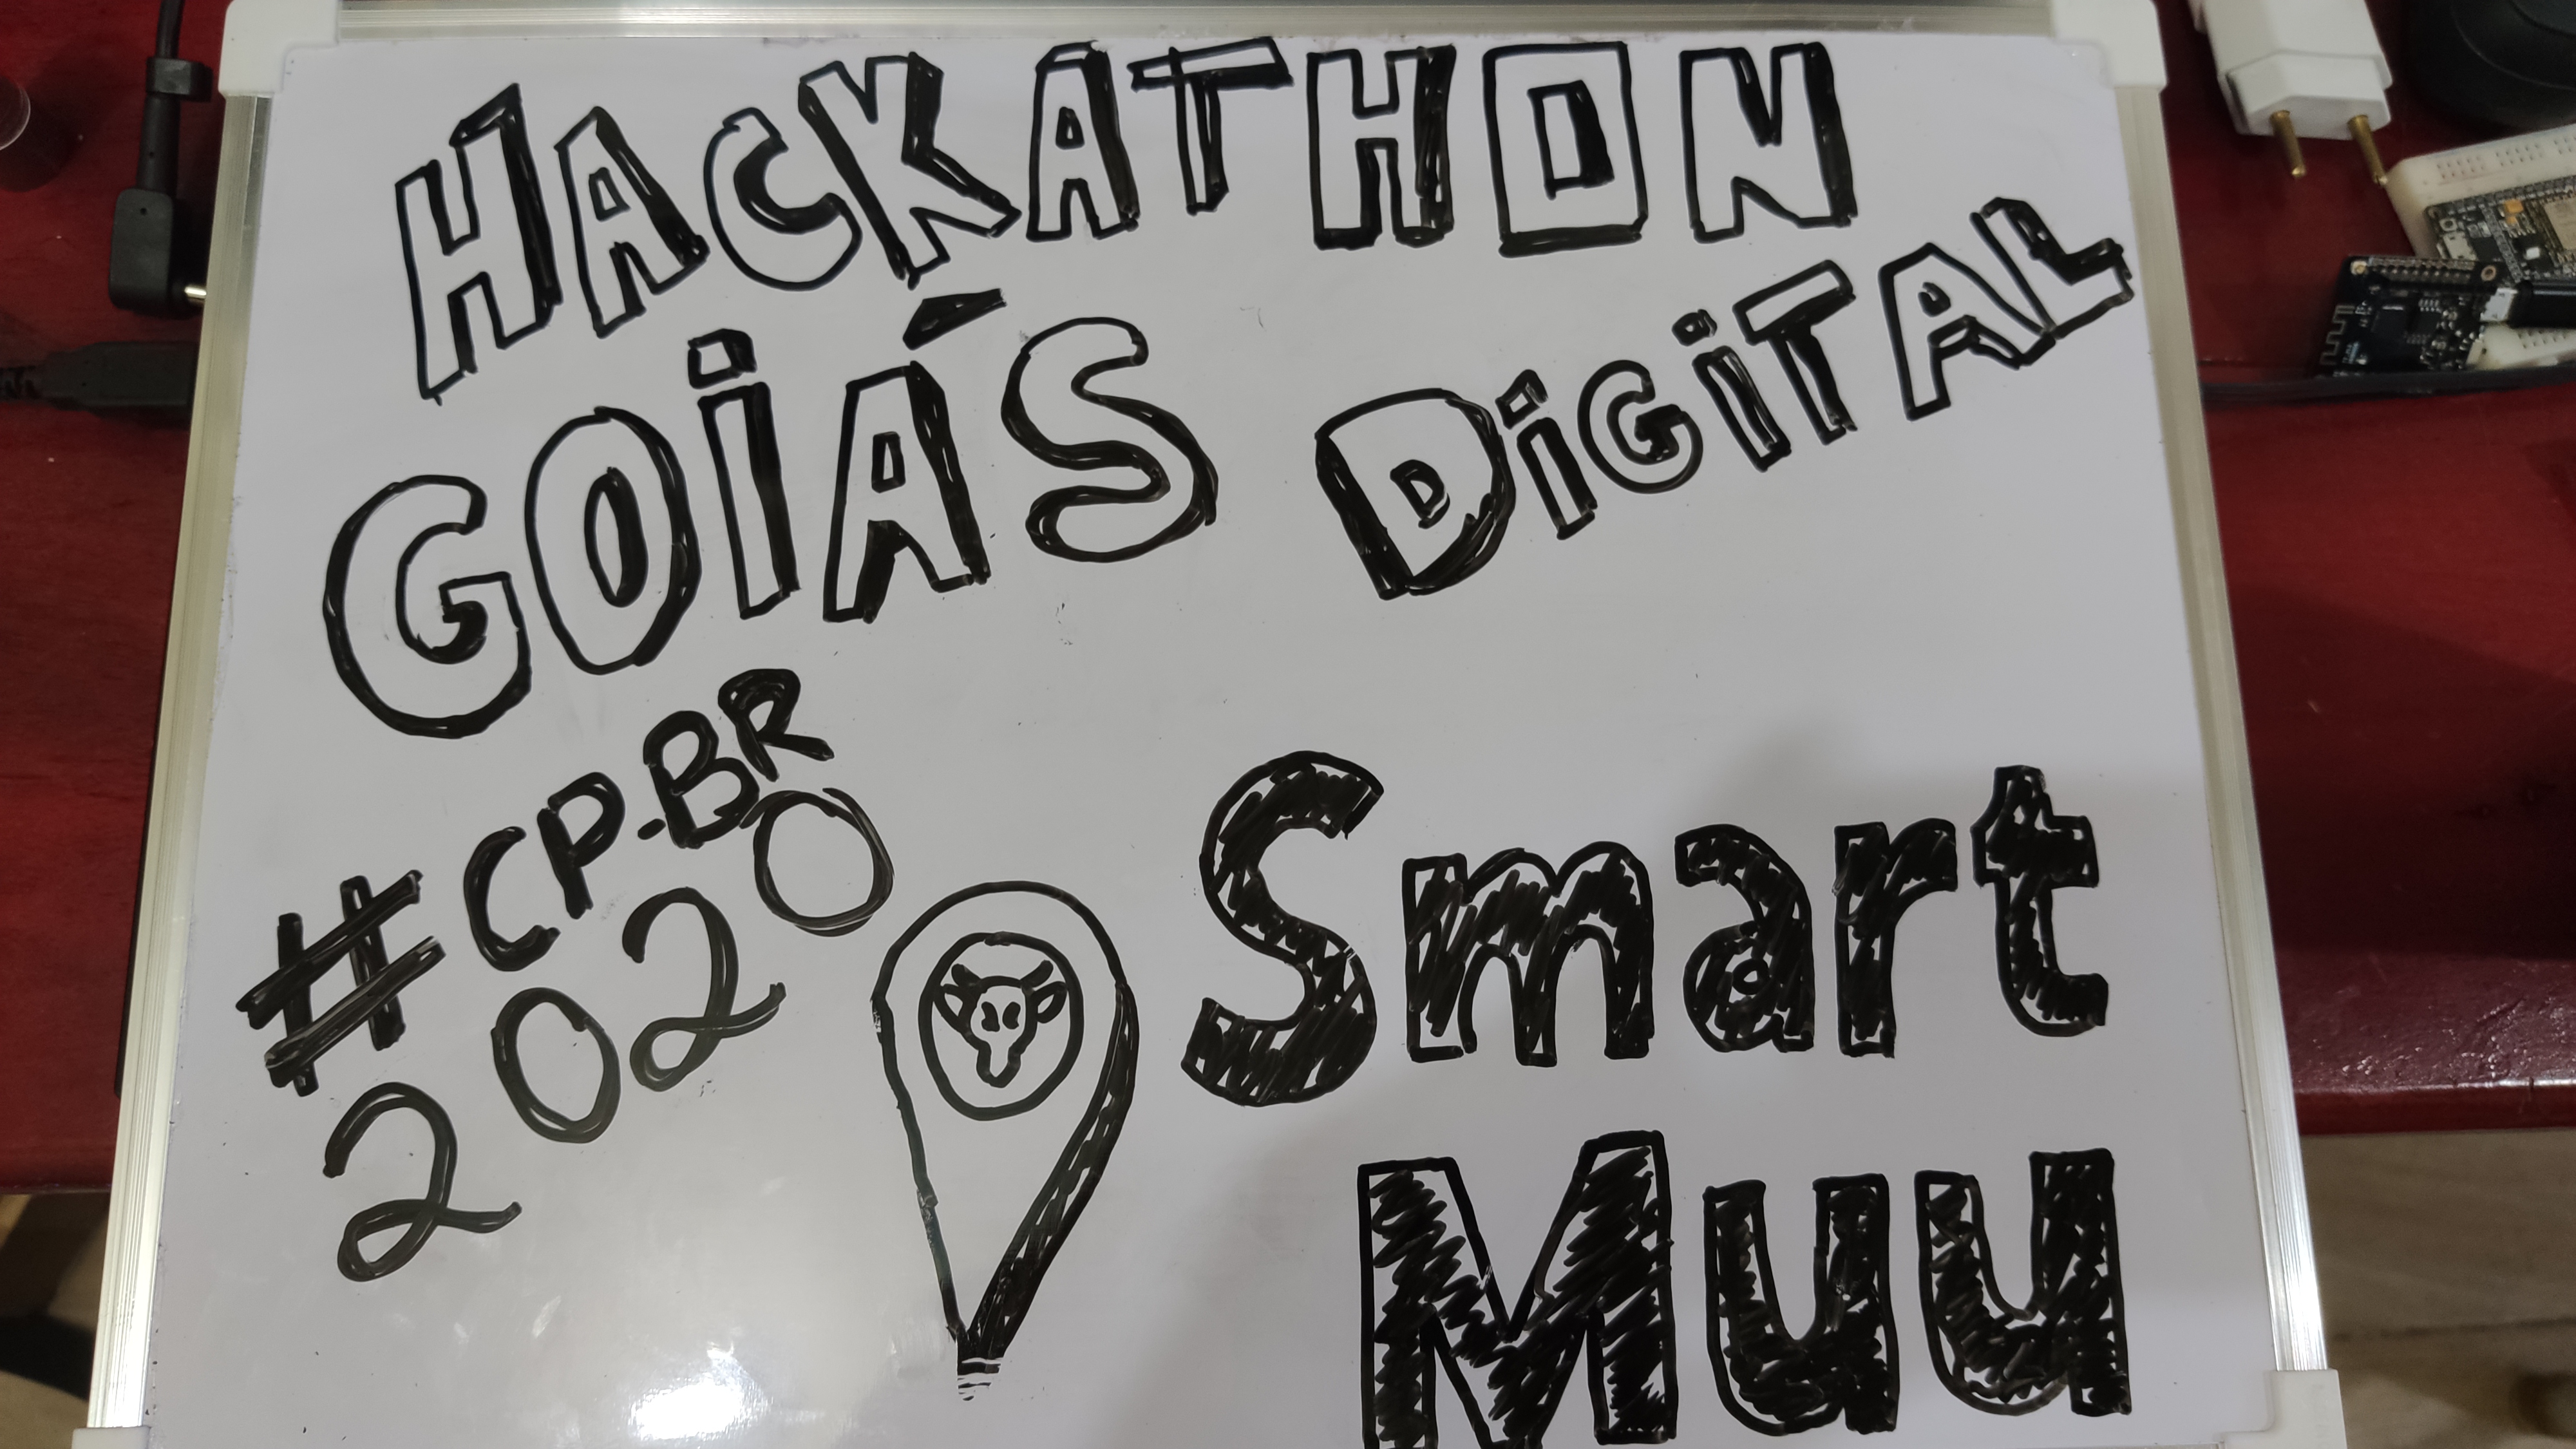 HACKATHON
GOIÁS DiGiTAL
#CP.BR
2020
Smart
Muu